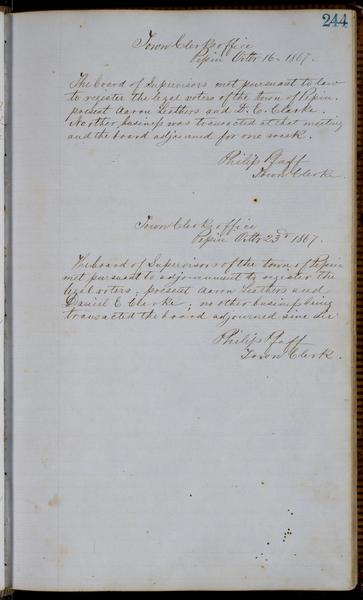 244
Town Clerks office
Pepin Octbr 16 - 1867.
The board of Supervisors met pursuant to law
to register the legal voters of the town of Pepin.
present Aaron Leathers and D. E. Clarke
No other business was transacted at that meeting
and the board adjourned for one week.
Philip Pfaff
Town Clerk
Town Clerks office
Pepin Octbr 23d 1867.
The board of Supervisors of the town of Pepin
met pursuant to adjournment to register the
legal voters; present Aaron Leathers and
Daniel E Clarke; no other business being
transacted the board adjourned sine die
Philip Pfaff
Town Clerk.